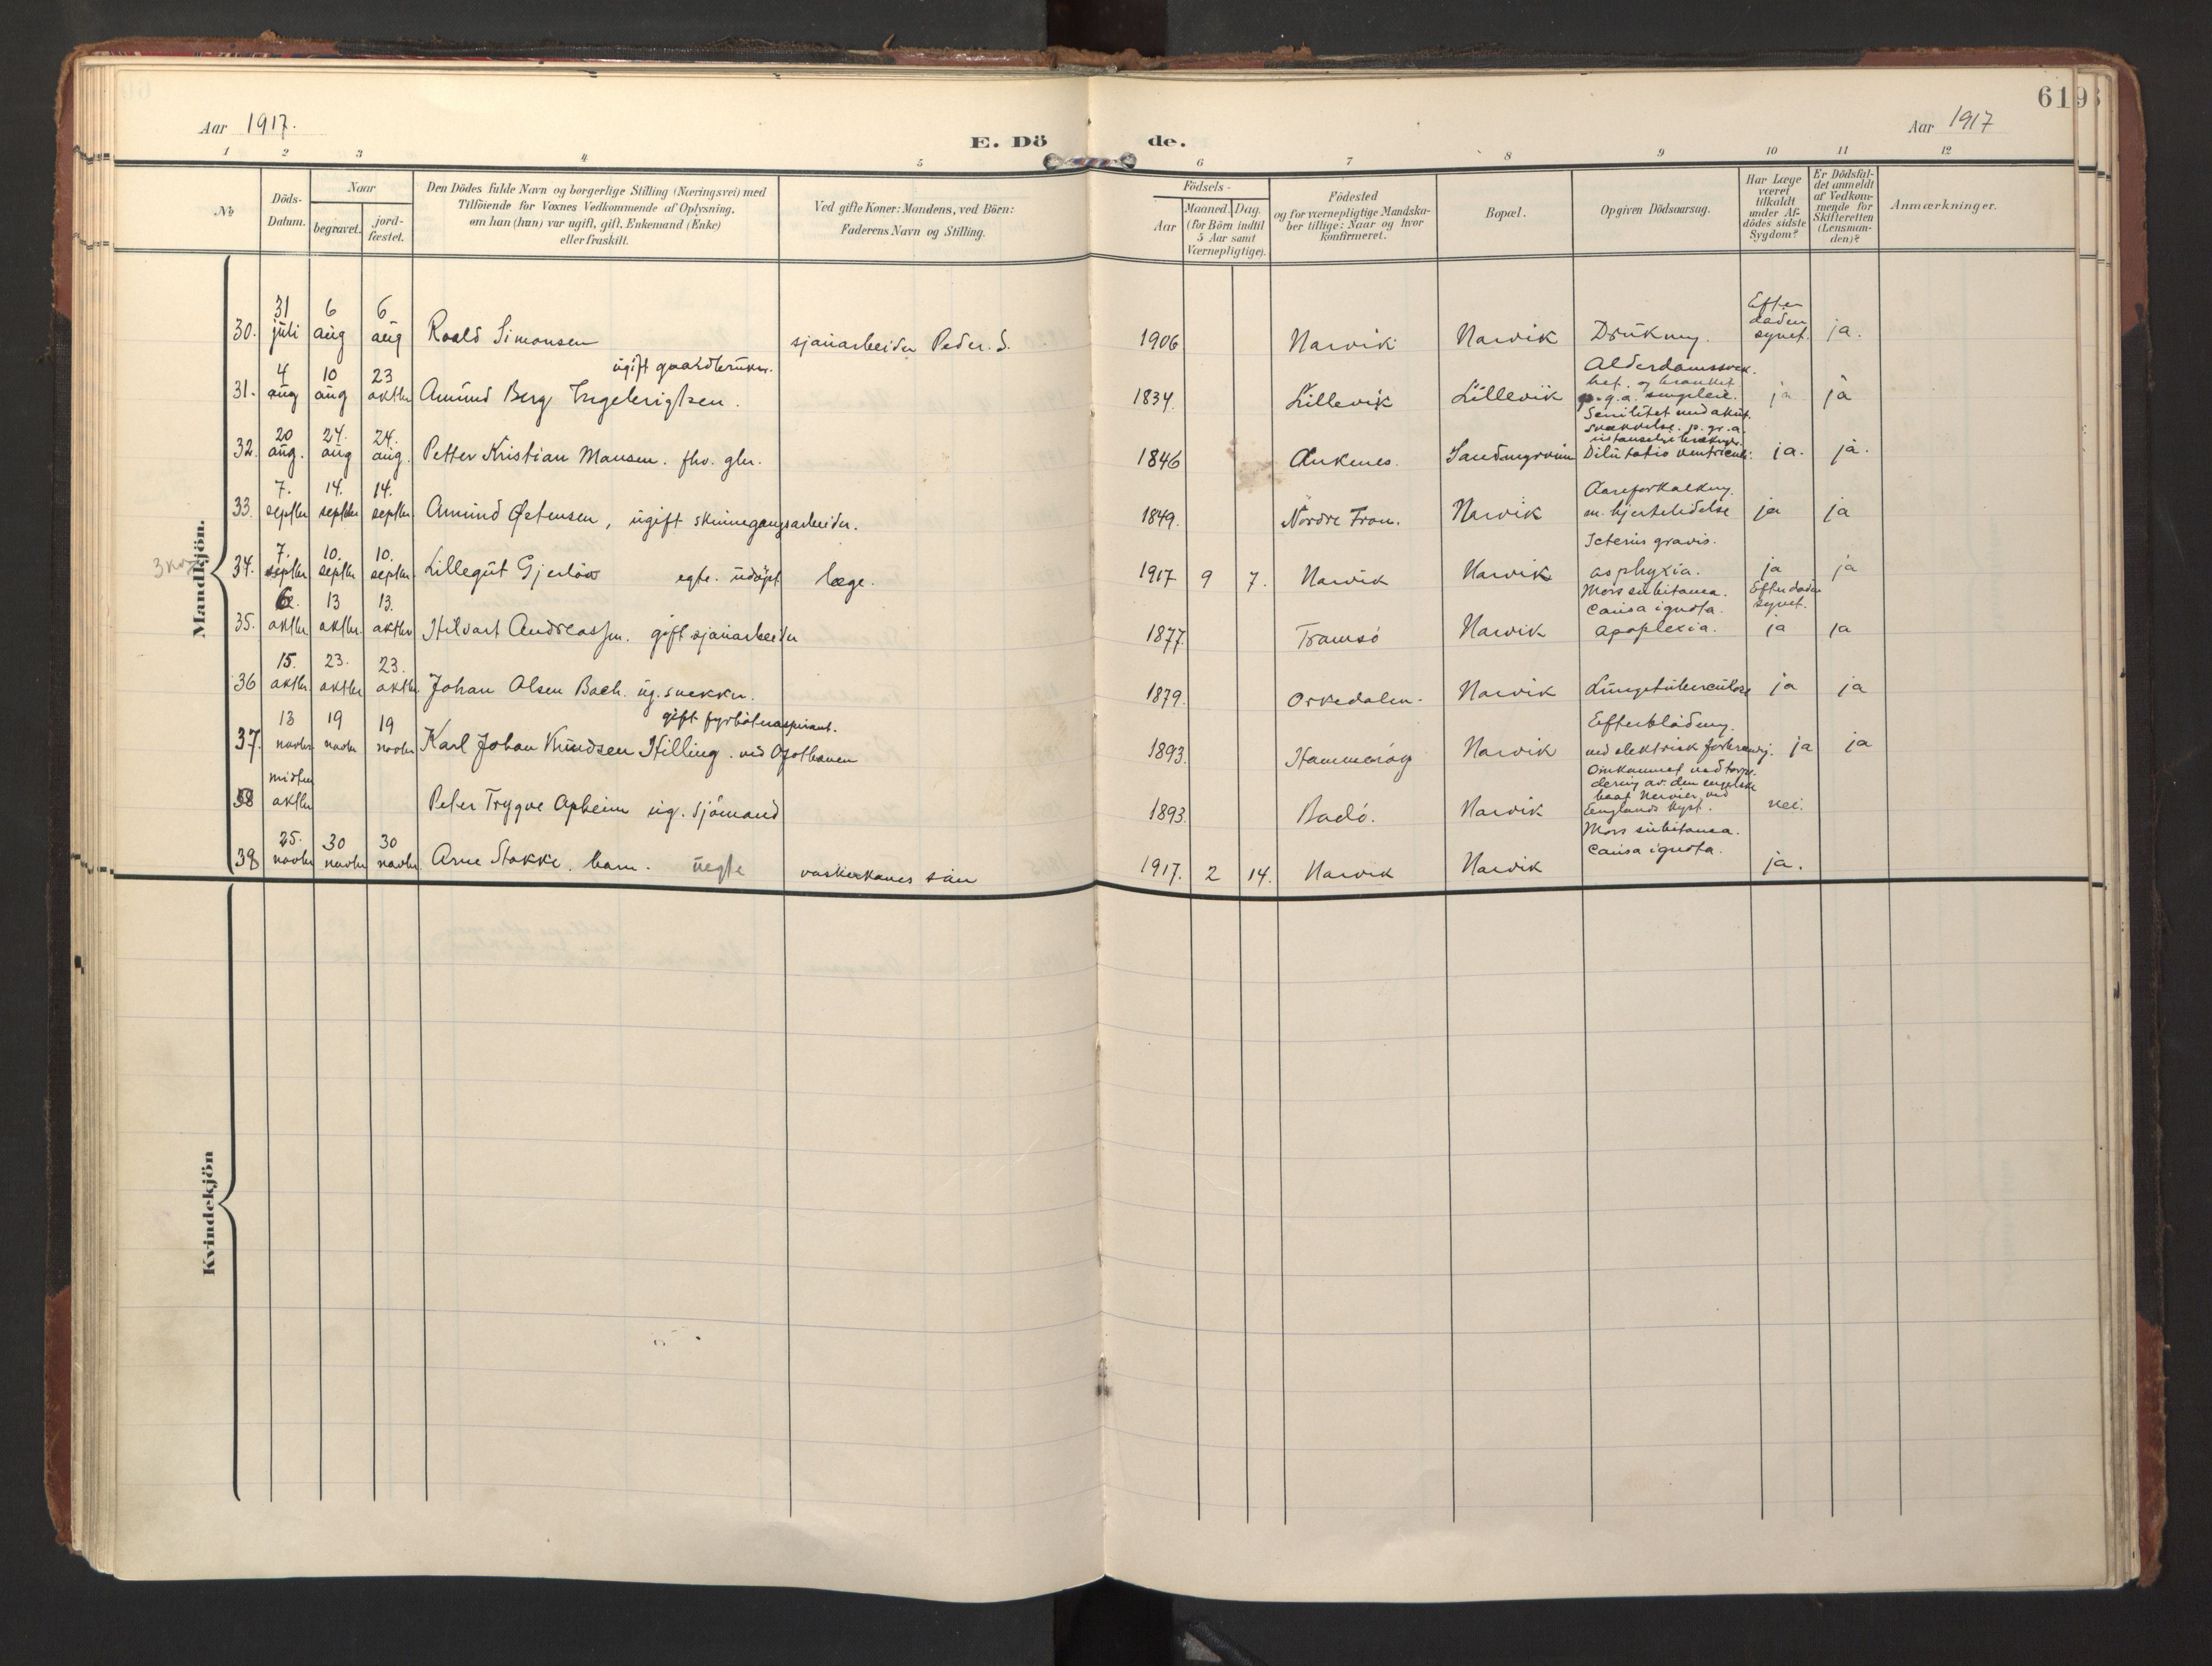 619
Aar 1917.
E. Döde.
Aar 1917
1 2 3 4 5 6 7 8 9 10 11 12
№
Döds-
Datum.
Naar
begravet.
jord-
fæstet.
Den Dödes fulde Navn og borgerlige Stilling (Næringsvei) med
Tilföiende for Voxnes Vedkommende af Oplysning,
om han (hun) var ugift, gift, Enkemand (Enke)
eller fraskilt.
Ved gifte Koner: Mandens, ved Börn:
Faderens Navn og Stilling.
Födsels-
Aar
Maaned. Dag.
(for Börn indtil
5 Aar samt
Værnepligtige).
Födested
og for værnepligtige Mandska-
ber tillige: Naar og hvor
konfirmeret.
Bopæl.
Opgiven Dödsaarsag.
Har Læge
været
tilkaldt
under Af-
dödes sidste
Sygdom?
Er Dödsfal-
det anmeldt
af Vedkom-
mende for
Skifteretten
(Lensman-
den)?
Anmærkninger.
Mandkjön.
30. 31 juli 6 aug 6 aug Roald Simonsen sjauarbeider Peder. S. 1906 Narvik Narvik Drukning. Efter døden synet. ja.
31. 4 aug 10 aug 23 oktbr Amund Berg Ingebrigtsen. ugift gaardbruker. 1834. Lillevik Lillevik ja ja
32. 20 aug. 24. aug 24. aug. Petter Kristian Mansen. fhv. gbr. 1846 Ankenes. Senilitet med akut. svækkelse. p. gr. a. Dilatatio ventriculi. ja. ja.
33. 7. septbr 14. septbr 14. septbr. Amund Østensen, ugift skinnegangsarbeider. 1849. Nordre Fron. Narvik Aareforkalkning. m. hjertelidelse ja ja
34. 7. septbr 10. septbr 10. septbr. Lillegut Gjerløw egte. udöpt læge. 1917 9 7. Narvik Narvik Icterus gravis. asphyxia. ja ja
35. 6. oktbr. 13 oktbr. 13. oktbr Hilvart Andreassen. gift sjauarbeider 1877. Tromsö Narvik Mors subitanea. Causa ignota. apoplexia. Efter døden synet. ja ja
36 15. oktbr. 23. oktbr 23. oktbr. Johan Olsen Bach. ug. snekker. 1879. Orkedalen. Narvik Lungetuberculose ja ja
37. 13 novbr. 19 novbr 19 novbr Karl Johan Knudsen Hilling. gift fyrböteraspirant. ved Ofotbanen 1893. Hammeröy Narvik Efterblödning. ved elektrisk forbrænding. ja ja
38 midten oktbr Peter Trygve Opheim ug. sjömand 1893. Bodö. Narvik Omkommet ved torpe-
dering av den engelske
baat ved
Englands kyst. nei.
39 25. novbr 30 novbr 30 novbr. Arne Stokke. barn. uegte vaskerkones sön 1917. 2 14. Narvik Narvik Mors subitanea. Causa ignota. ja.
Kvindekjön